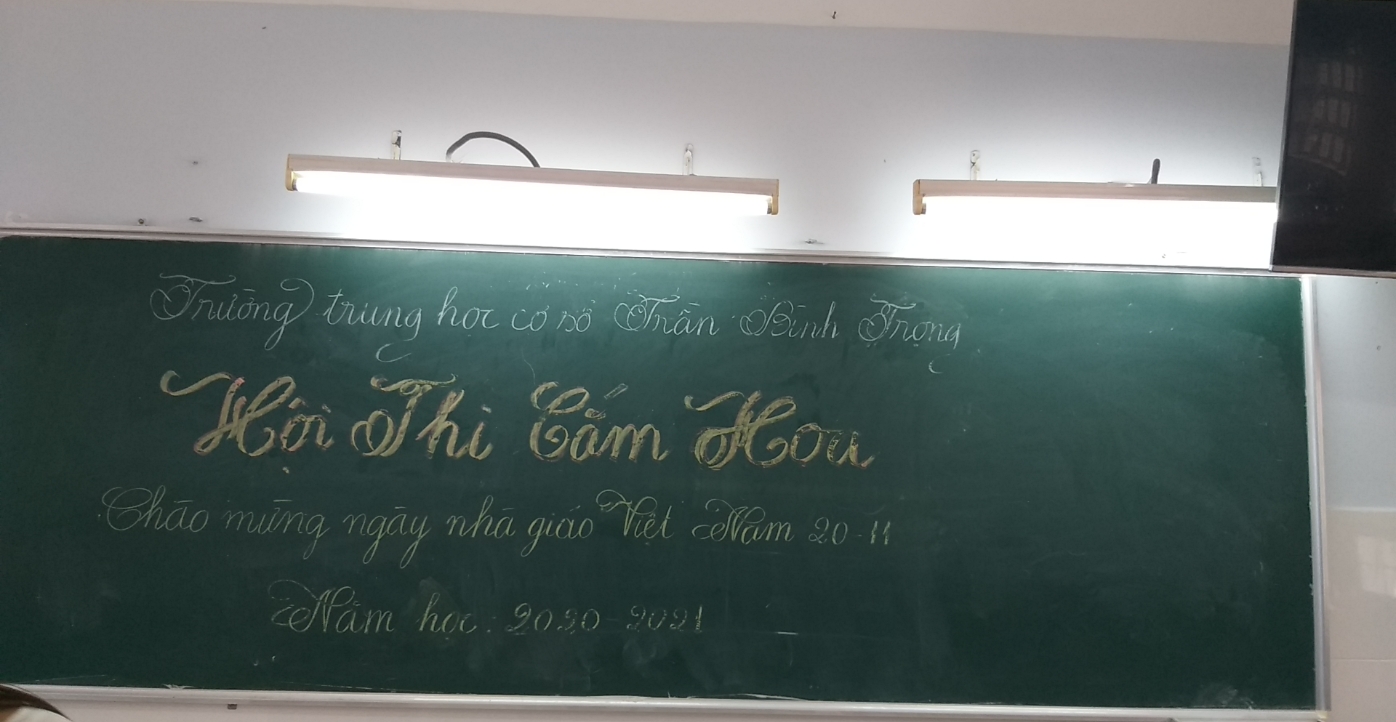 Trường trung học cơ sở Trần Bình Trọng
Hội Thi Cắm Hoa
Chào mừng ngày nhà giáo Việt Nam 20-11
Năm học: 2020-2021